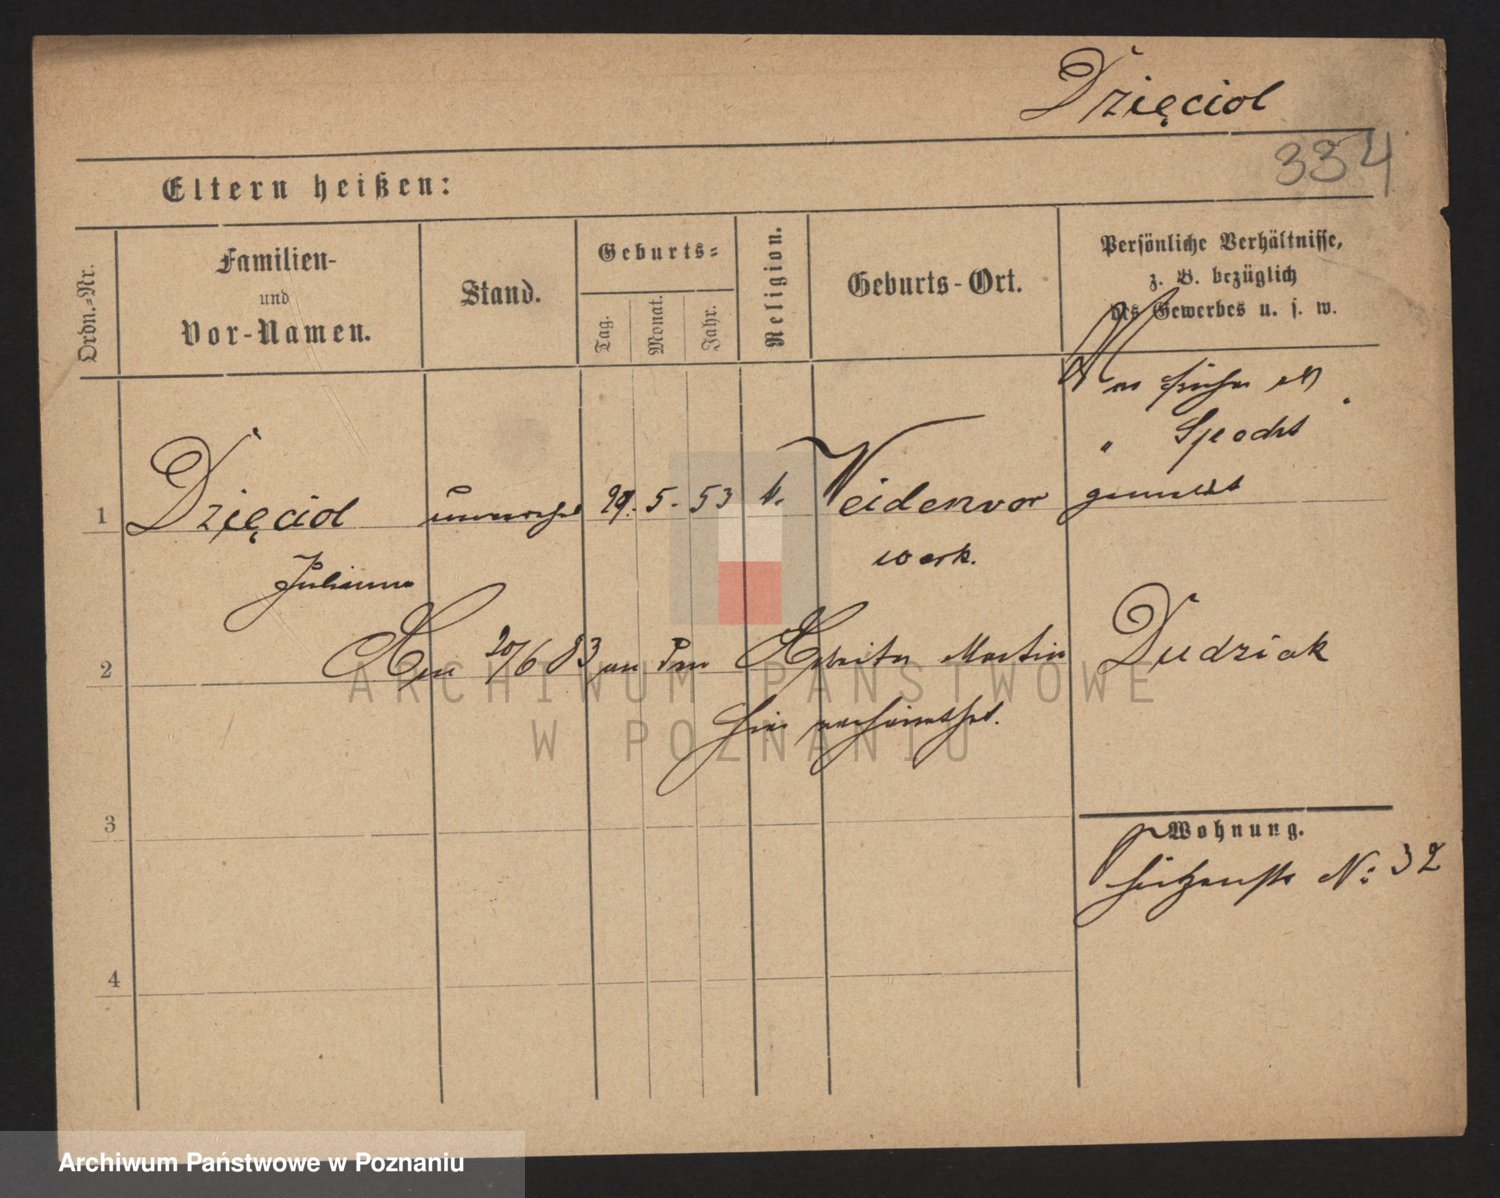 Dzięciol
334
Eltern heißen:
Ordn.-Nr.
Familien-
und
Vor-Namen.
Stand.
Geburts-
Tag.
Monat.
Jahr.
Religion.
Geburts-Ort.
Persönliche Verhältnisse,
z. B. bezüglich
des Gewerbes u. s. w.
War früher als
" Specht
gemeldet
1 Dzięciol unverehel 29. 5. 53 k. Weidenvor
werk.
Julianna
2 20/6 83 an den Arbeiter Martin Dudziak
hier verheirathet.
3
Wohnung.
Schützenstr No: 32
4
ARCHIWUM PAŃSTWOWE
W POZNANIU
Archiwum Państwowe w Poznaniu